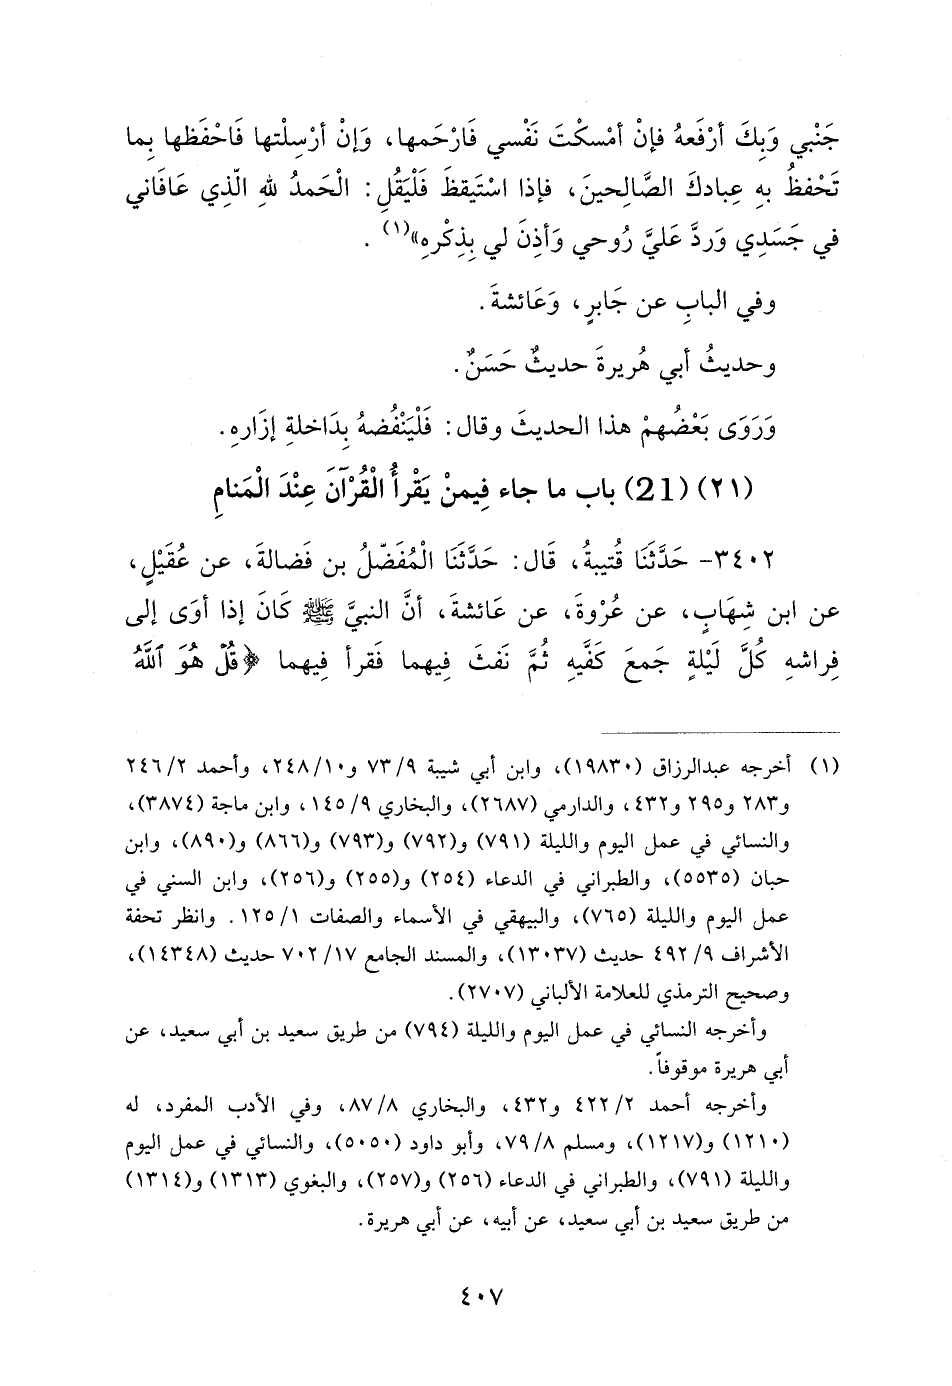 جَنْبي وَبِكَ أرْفَعهُ فإنْ أمْسكْتَ نَفْسي فَارْحَمها، وَإنْ أرْسِلْتها فَاحْفَظها بِما
تَحْفظُ بِهِ عِبادكَ الصَّالِحينَ، فإذا اسْتَيقظَ فَلْيَقُلِ: الْحَمدُ للهِ الّذِي عَافَاني
في جَسَدِي وَردَّ عَليَّ رُوحي وَأذِنَ لي بِذِكْرهِ»(١) .
وفي البابِ عن جَابرٍ، وَعَائشةَ.
وحديثُ أبي هُريرةَ حديثٌ حَسَنٌ.
وَرَوَى بَعْضُهمْ هذا الحديثَ وقال: فَلْيَنْفُضهُ بِدَاخلةِ إزَارهِ.
(٢١) (21) باب ما جاء فِيمنْ يَقْرأُ الْقُرْآنَ عِنْدَ الْمَنامِ
٣٤٠٢- حَدَّثَنَا قُتيبةُ، قَال: حَدَّثَنَا الْمُفَضّلُ بن فَضالةَ، عن عُقَيْلٍ،
عن ابن شِهَابٍ، عن عُرْوةَ، عن عَائشةَ، أنَّ النبيَّ ﷺ كَانَ إذا أوَى إلى
فِراشهِ كُلَّ لَيْلةٍ جَمعَ كَفَّيهِ ثُمَّ نَفثَ فِيهما فَقرأ فِيهما ﴿قُلْ هُوَ ٱللَّهُ
(١) أخرجه عبدالرزاق (١٩٨٣٠)، وابن أبي شيبة ٩/ ٧٣ و١٠/ ٢٤٨، وأحمد ٢/ ٢٤٦
و٢٨٣ و٢٩٥ و٤٣٢، والدارمي (٢٦٨٧)، والبخاري ٩/ ١٤٥، وابن ماجة (٣٨٧٤)،
والنسائي في عمل اليوم والليلة (٧٩١) و(٧٩٢) و(٧٩٣) و(٨٦٦) و(٨٩٠)، وابن
حبان (٥٥٣٥)، والطبراني في الدعاء (٢٥٤) و(٢٥٥) و(٢٥٦)، وابن السني في
عمل اليوم والليلة (٧٦٥)، والبيهقي في الأسماء والصفات ١/ ١٢٥. وانظر تحفة
الأشراف ٩/ ٤٩٢ حديث (١٣٠٣٧)، والمسند الجامع ١٧/ ٧٠٢ حديث (١٤٣٤٨)،
وصحيح الترمذي للعلامة الألباني (٢٧٠٧).
وأخرجه النسائي في عمل اليوم والليلة (٧٩٤) من طريق سعيد بن أبي سعيد، عن
أبي هريرة موقوفاً.
وأخرجه أحمد ٢/ ٤٢٢ و٤٣٢، والبخاري ٨/ ٨٧، وفي الأدب المفرد، له
(١٢١٠) و(١٢١٧)، ومسلم ٨/ ٧٩، وأبو داود (٥٠٥٠)، والنسائي في عمل اليوم
والليلة (٧٩١)، والطبراني في الدعاء (٢٥٦) و(٢٥٧)، والبغوي (١٣١٣) و(١٣١٤)
من طريق سعيد بن أبي سعيد، عن أبيه، عن أبي هريرة.
٤٠٧